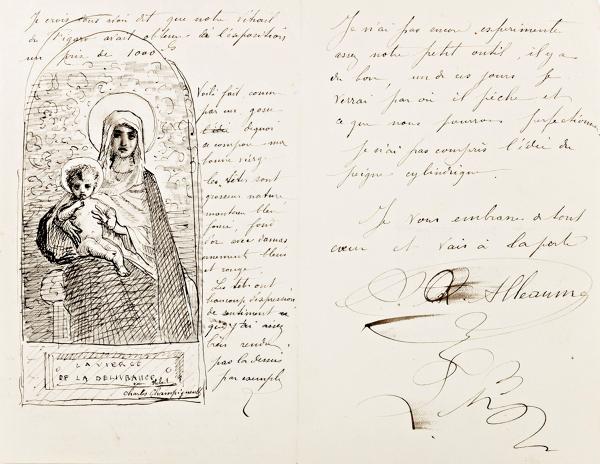 Je crois vous avoir dit que notre
du Figaro avait obtenu de l'exposition
un prix de 1000f
Voilà fait comme
par un gosse
de quoi
se compose ma
bonne vierge
les têtes sont
grosseur nature
manteau bleu
foncé, fond
d'or avec damas
ornement bleus
et rouge.
Les têtes ont
beaucoup d'expression
de sentiment
que j'ai assez
bien rendu
pas là dessus
par exemple
LA VIERGE
DE LA DELIVRANCE
Charles Champigneulle
Je n'ai pas encore expérimenté
assez notre petit outil, il y a
du bon, un de ces jours je
verrai par où il pèche et
ce que nous pourrons perfectionner.
Je n'ai pas compris l'idée du
peigne cylindrique.
Je vous embrasse de tout
cœur et vais à la porte